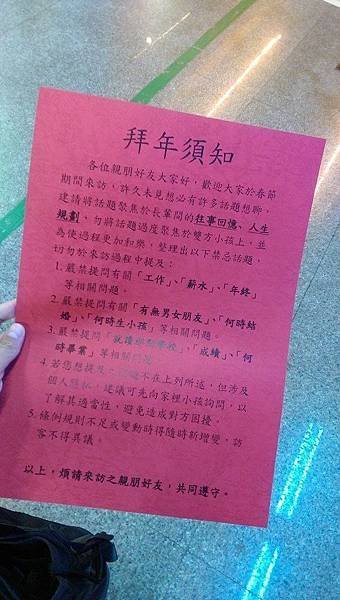 拜年須知
各位親朋好友大家好，歡迎大家於春節
期間來訪，許久未見想必有許多話題想聊，
建請將話題聚焦於長輩間的往事回憶、人生
規劃，勿將話題過度聚焦於雙方小孩上，並
為使過程更加和樂，整理出以下禁忌話題，
切勿於來訪過程中提及：
1. 嚴禁提問有關「工作」、「薪水」、「年終」
等相關問題。
2. 嚴禁提問有關「有無男女朋友」、「何時結
婚」、「何時生小孩」等相關問題。
3. 嚴禁提問「就讀哪間學校」、「成績」、「何
時畢業」等相關問題。
4. 若您想提及之話題不在上列所述，但涉及
個人隱私，建議可先向家裡小孩詢問，以
了解其適當性，避免造成對方困擾。
5. 條例規則不足或變動時得隨時新增變，訪
客不得異議。
以上，煩請來訪之親朋好友，共同遵守。